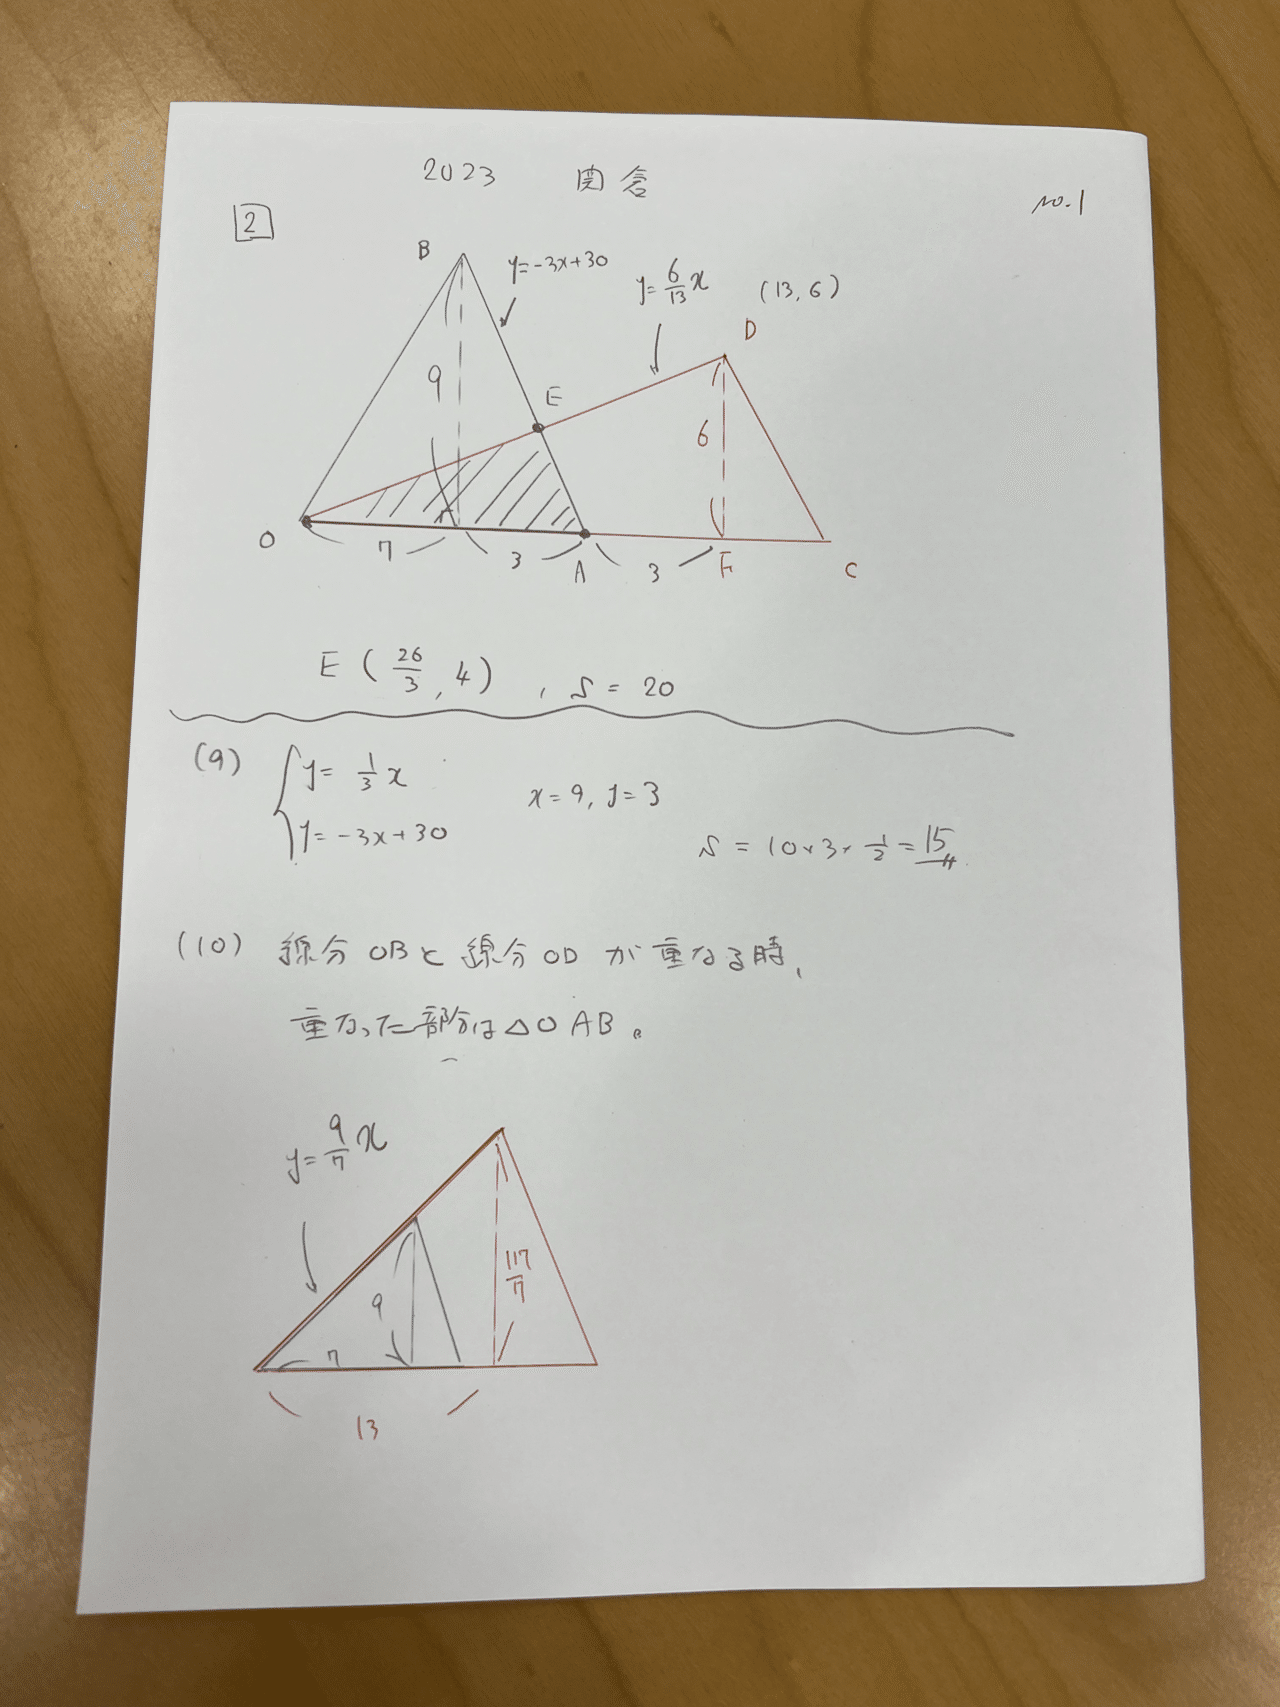 2023 関倉
No.1
2
B
y=-3x+30
y=6/13x
(13, 6)
D
9
E
6
O
7
3
A
3
F
C
E(26/3, 4), S=20
(9) { y=1/3x
y=-3x+30
x=9, y=3
S=10×3×1/2=15
(10) 線分OBと線分ODが重なる時、
重なった部分は△OAB。
y=9/7x
9
7
117/7
13